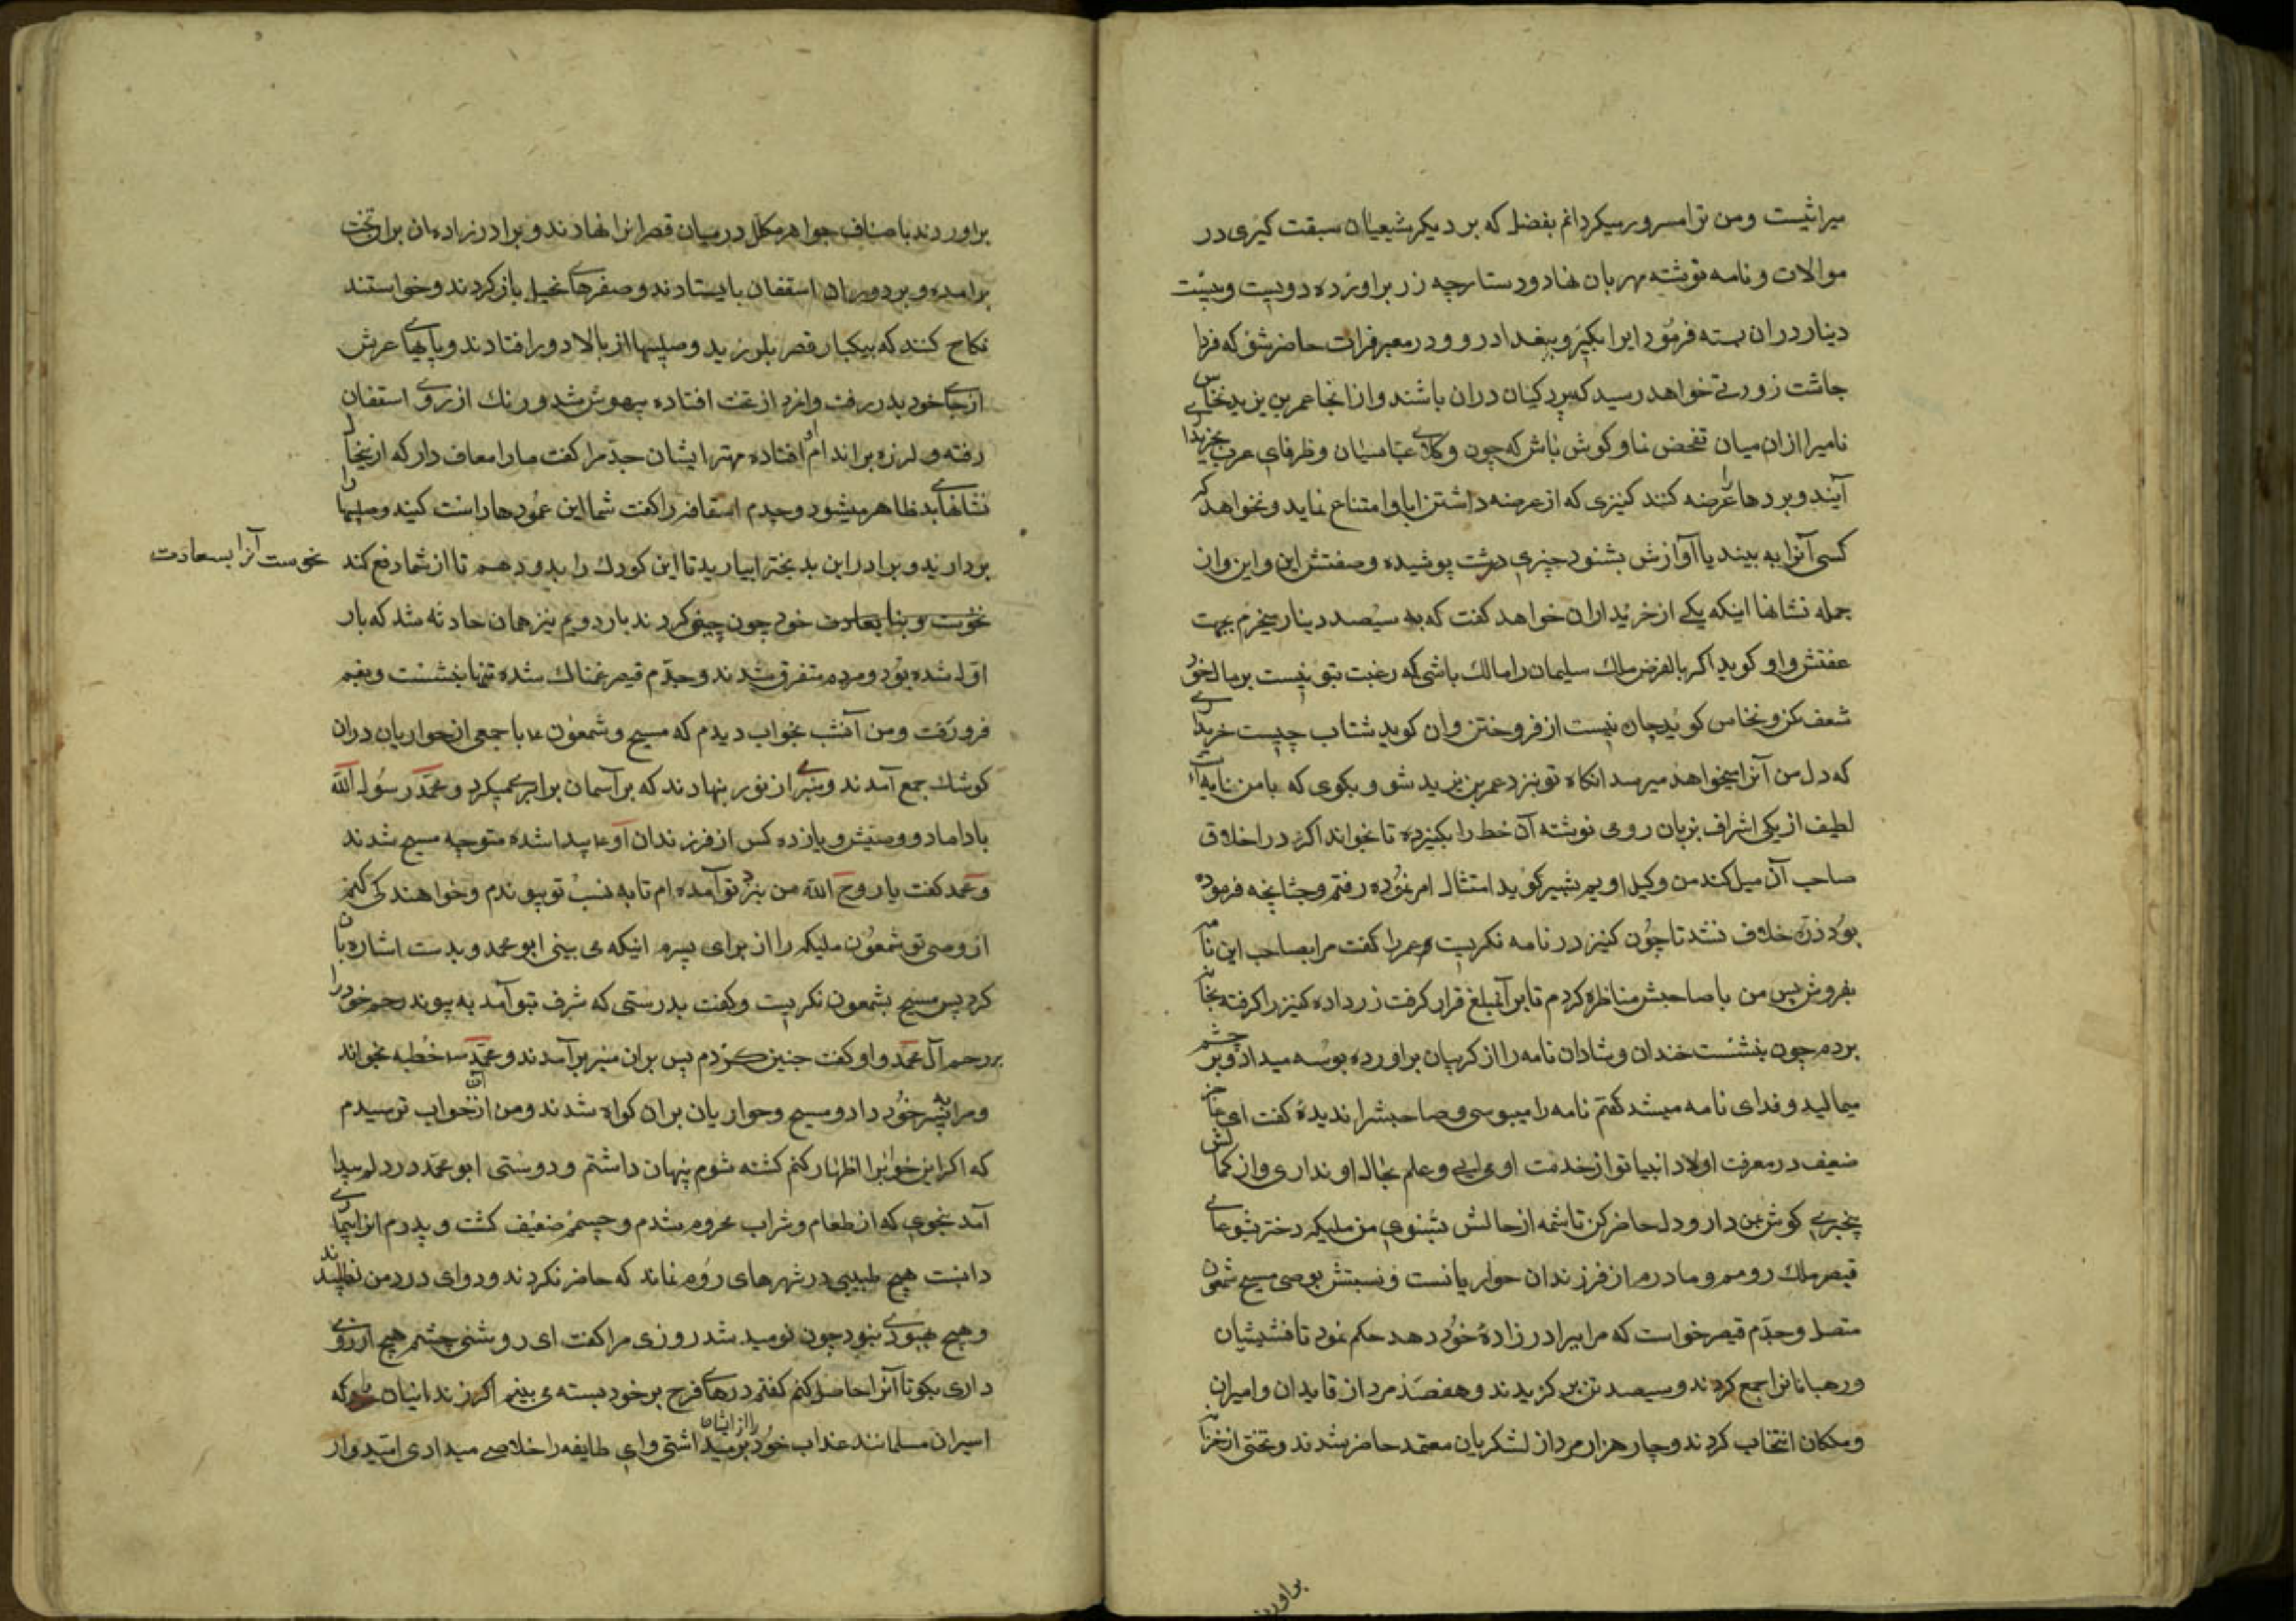 میراثیست ومن ترا مسرور میکردانم بفضل که بر دیکر شیعیان سبقت کیری در
موالات و نامه نوشته مهر بان نهاد و دستارچه زر براورده دویست و بیست
دینار دران بسته فرمود این را بکیر و ببغداد رو و در معبر فرات حاضر شو که فردا
چاشت زورقی خواهد رسید که بردکیان دران باشند و از انجا عمر بن یزید نخاس
نامیرا ازان میان تفحض نما و کوش باش که چون وکلای عباسیان و ظرفای عرب بخریداری
آیند و بردها را عرضه کنند کنیزی که از عرضه داشتن ابا و امتناع نماید و نخواهد که
کسی آنرا به بیند یا آوازش بشنود چیزی درشت پوشیده و صفتش این و این و از
جمله نشانها اینکه یکی از خریداران خواهد کفت که به سیصد دینار میخرم بجهت
عفتش و او کوید اکر بالفرض ملک سلیمان را مالک باشی که رغبت بتو نیست بر مال خود
شعف مکن و نخاس کوید چاره نیست از فروختن و ان کوید شتاب چیست خریداری
که دل من آنرا میخواهد میرسد انکاه تو بنزد عمر بن یزید شو و بکوی که با من نامه‌ایست
لطیف از یکی اشراف بزبان رومی نوشته آن خط را بکیر ده تا بخواند اکر در اخلاق
صاحب آن میل کند من وکیل اویم بشیر کوید امتثال امر نموده رفتم و چنانچه فرموده
بود ذره خلاف نشد تا چون کنیز در نامه نکریست و عمر را کفت مرا بصاحب این نامه
بفروش پس من با صاحبش مناظره کردم تا بر آنمبلغ قرار کرفت زر داده کنیز را کرفته بخانه
بردم چون بنشست خندان و شادان نامه را از کریبان براورده بوسه میداد و بر چشم
میمالید و فدای نامه میشد کفتم نامه را میبوسی و صاحبش را ندیدهٔ کفت ای عاجز
ضعیف در معرفت اولاد انبیا تو از خدمت او می‌ایی و علم بحال او نداری و از کمالش
بیخبری کوش بمن دار و دل حاضر کن تا شمه از حالش بشنوی من ملیکه دختر یشوعای
قیصر ملک رومم و مادرم از فرزندان حواریانست و نسبتش بوصی مسیح شمعون
متصل و جدم قیصر خواست که مرا ببرادرزادهٔ خود دهد حکم نمود تا قسیسان
و رهبانانرا جمع کردند و سیصد تن بر کزیدند و هفصد مرد از قایدان و امیران
و ملکان انتخاب کردند و چار هزار مرد از لشکریان معتمد حاضر شدند و تختی از خزانه
براورد
براوردند باصناف جواهر مکلل در میان قصر انرا نهادند و برادرزاده ان بران تخت
برآمده و بر دور ان اسقفان بایستادند و صفرهای انجیل باز کردند و خواستند
نکاح کنند که بیکبار قصر بلرزید و صلیبها از بالا دور افتادند و پایهای عرش
از جای خود بدر رفت وانمرد از تخت افتاده بیهوش شد و رنک از روی اسقفان
رفته و لرزه بر اندام او افتاده مهتر ایشان جدمرا کفت ما را معاف دار که از ینحال
نشانهای بد ظاهر میشود و جدم اسقافه را کفت شما این عمودها راست کنید و صلیبها را
بردارید و برادر این بدبخترا بیارید تا این کودک را بدو دهم تا از شما دفع کند نحوست آنرا بسعادت
نحوست و بنا بعادت خود چون چنین کردند بار دویم نیز همان حادثه شد که بار
اول شده بود و مردم متفرق شدند و جدم قیصر غمناک شده تنها بنشست و بغم
فرو رفت ومن آنشب بخواب دیدم که مسیح و شمعون ع با جمعی از حواریان دران
کوشک جمع آمدند و منبری از نور بنهادند که بر آسمان برابری میکرد و محمد رسول الله
با داماد و وصیش و یازده کس از فرزندان او ع پیدا شده متوجه مسیح شدند
و محمد کفت یا روح الله من نزد تو آمده ام تا به نسب تو پیوندم و خواهندکی کنم
از وصی تو شمعون ملیکه را از برای پسرم اینکه می بینی ابو محمد و بدست اشاره بان
کرد پس مسیح بشمعون نکریست و کفت بدرستی که شرف بتو آمد به پیوند رحم خود را
بر رحم آل محمد و او کفت چنین کردم پس بران منبر برآمدند و محمد خطبه بخواند
و مرا به پسر خود داد و مسیح و حواریان بران کواه شدند ومن از آن خواب ترسیدم
که اکر این خوابرا اظهار کنم کشته شوم پنهان داشتم و دوستی ابو محمد در دلم پیدا
آمد بنحوی که از طعام و شراب محروم شدم و جسمم ضعیف کشت و پدرم انرا بیماری
دانست هیچ طبیبی در شهرهای روم نماند که حاضر نکردند و دوای درد من نطلبیدند
و هیچ بهبودی نبود چون نومید شد روزی مرا کفت ای روشنی چشم هیچ ارزوی
داری بکو تا آنرا حاصل کنم کفتم درهای فرج بر خود بسته می بینم اکر زندانیان را که
اسیران مسلمانند عذاب خود را از ایشان بر میداشتی وای طایفه را خلاصی میدادی امیدوار